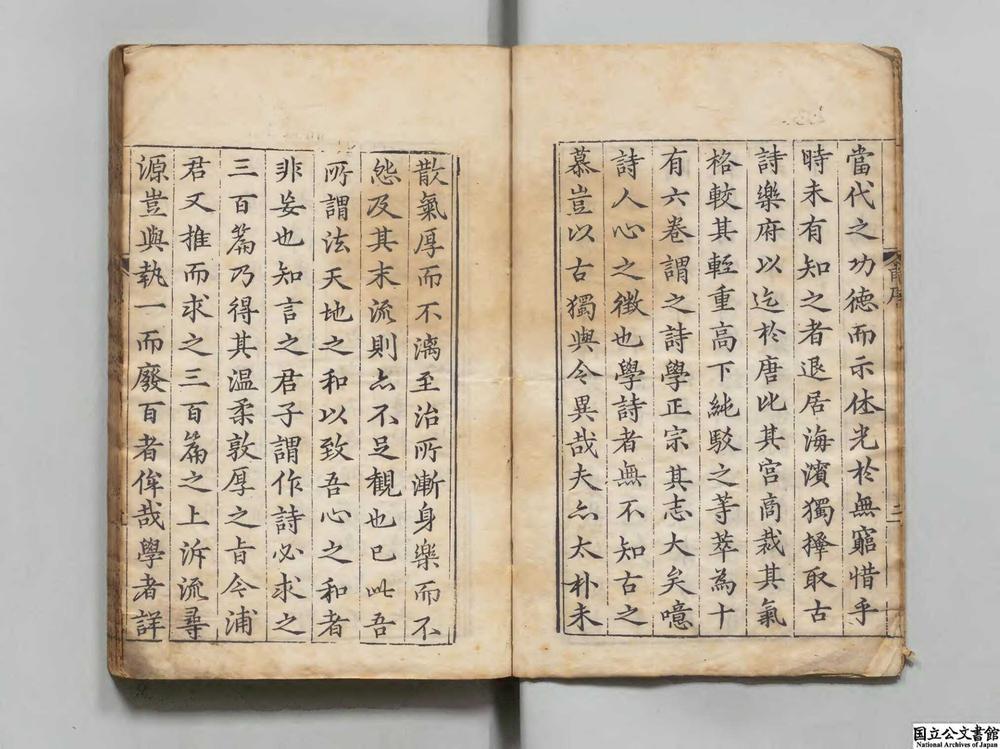 當代之功德而示休光於無窮惜乎
時未有知之者退居海濱獨擇取古
詩樂府以迄於唐比其宫商裁其氣
格較其輕重高下純駁之等萃為十
有六卷謂之詩學正宗其志大矣噫
詩人心之徴也學詩者無不知古之
慕豈以古獨與今異哉夫亦太朴未
散氣厚而不漓至治所漸身樂而不
怨及其末流則亦不足觀也已此吾
所謂法天地之和以致吾心之和者
非妄也知言之君子謂作詩必求之
三百篇乃得其温柔敦厚之旨今浦
君又推而求之三百篇之上泝流尋
源豈與執一而廢百者侔哉學者詳
二
国立公文書館
National Archives of Japan